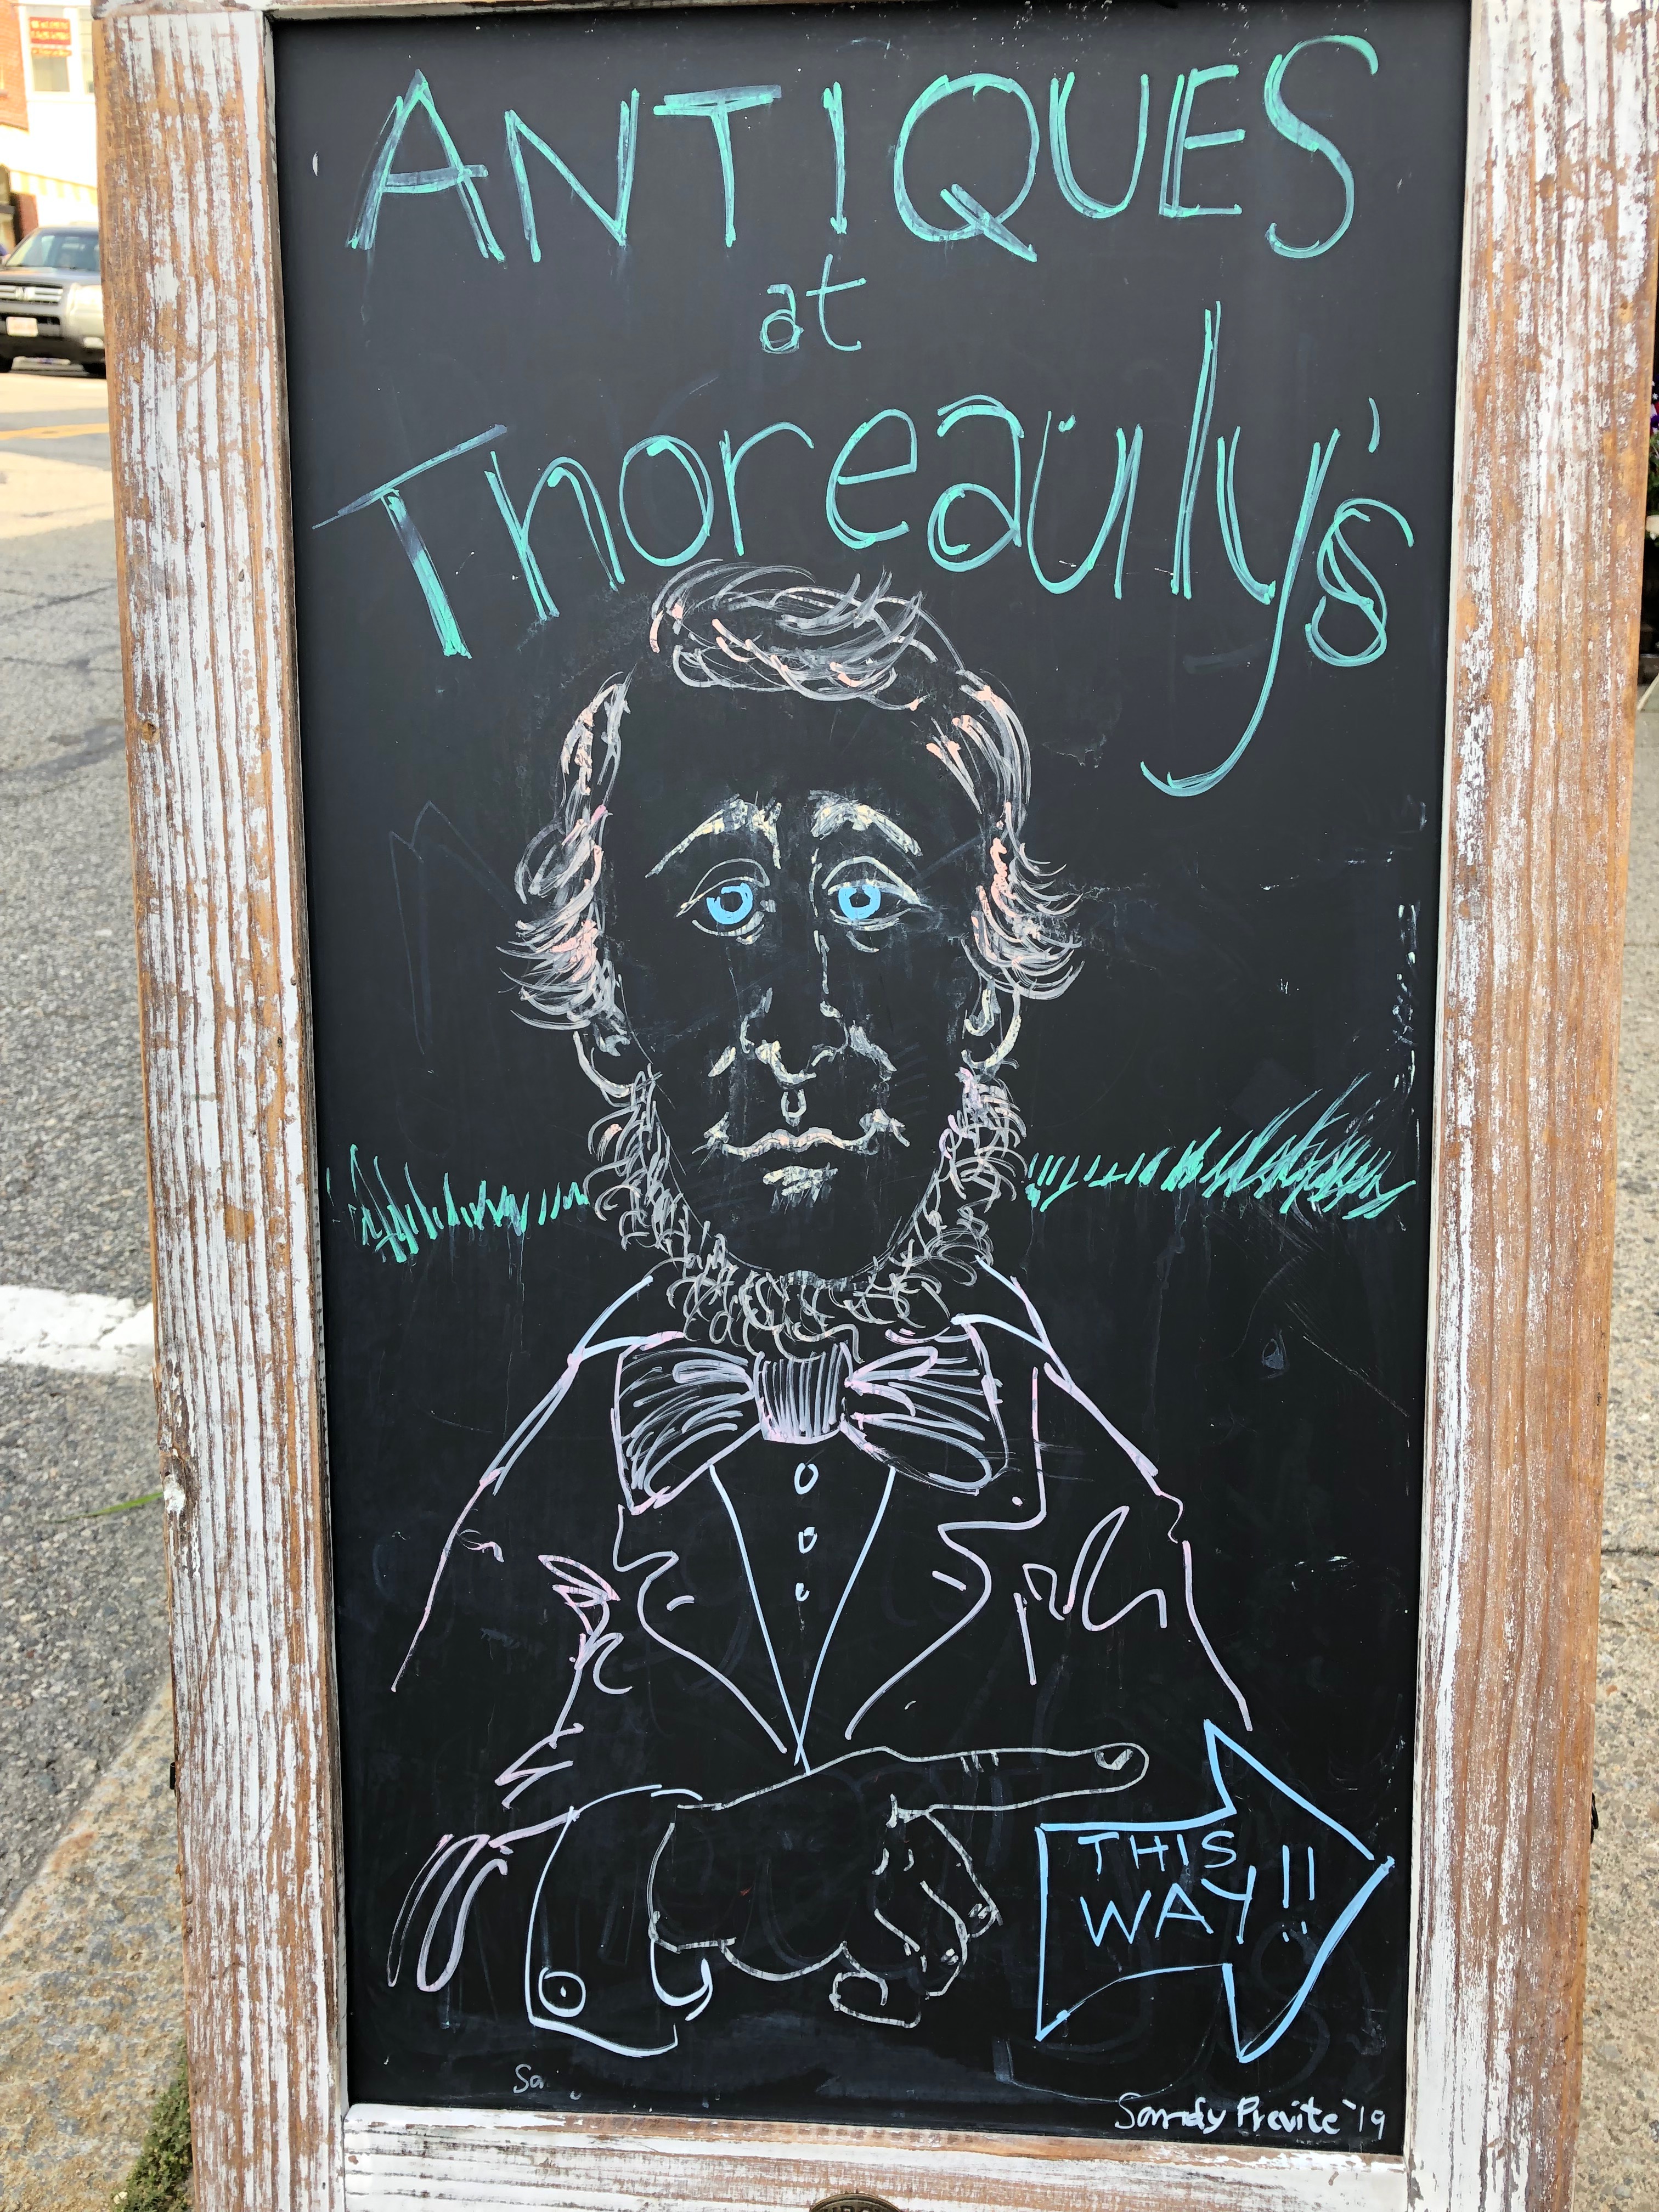 ANTIQUES
at
Thoreauly's
THIS
WAY!!
Sandy Previte '19